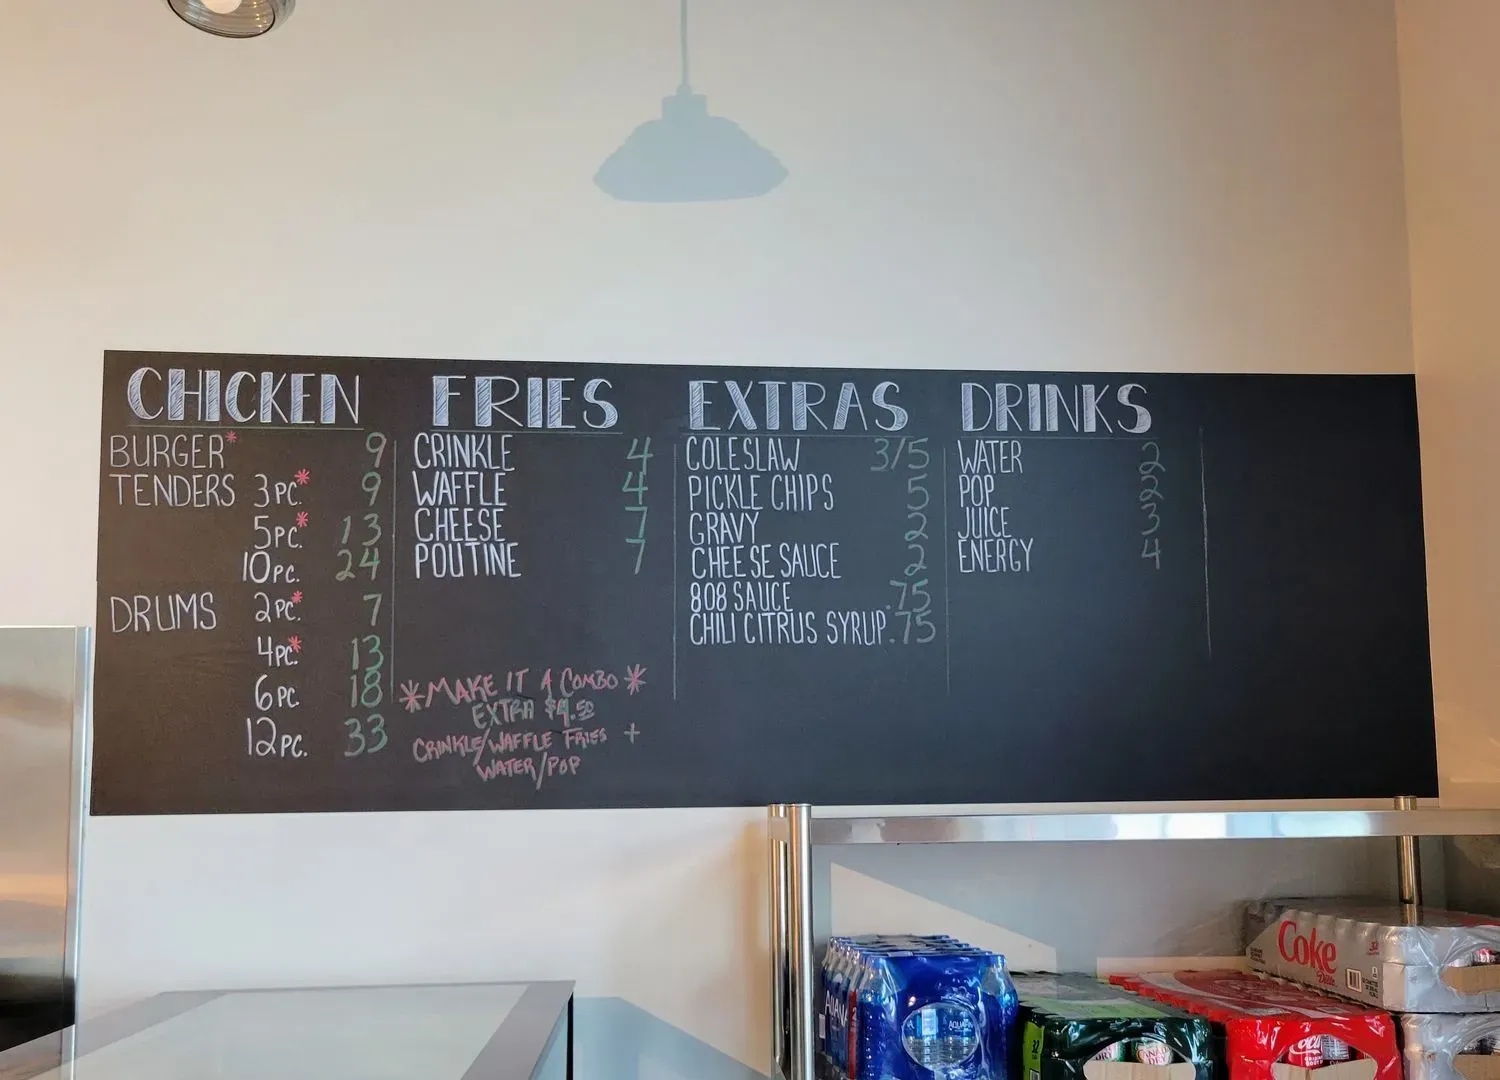 CHICKEN
BURGER* 9
TENDERS 3PC.* 9
5PC.* 13
10PC. 24
DRUMS 2PC.* 7
4PC.* 13
6PC. 18
12PC. 33
FRIES
CRINKLE 4
WAFFLE 4
CHEESE 7
POUTINE 7
*MAKE IT A COMBO*
EXTRA $4.50
CRINKLE/WAFFLE FRIES +
WATER/POP
EXTRAS
COLESLAW 3/5
PICKLE CHIPS 5
GRAVY 2
CHEESE SAUCE 2
808 SAUCE .75
CHILI CITRUS SYRUP .75
DRINKS
WATER 2
POP 2
JUICE 3
ENERGY 4
Coke